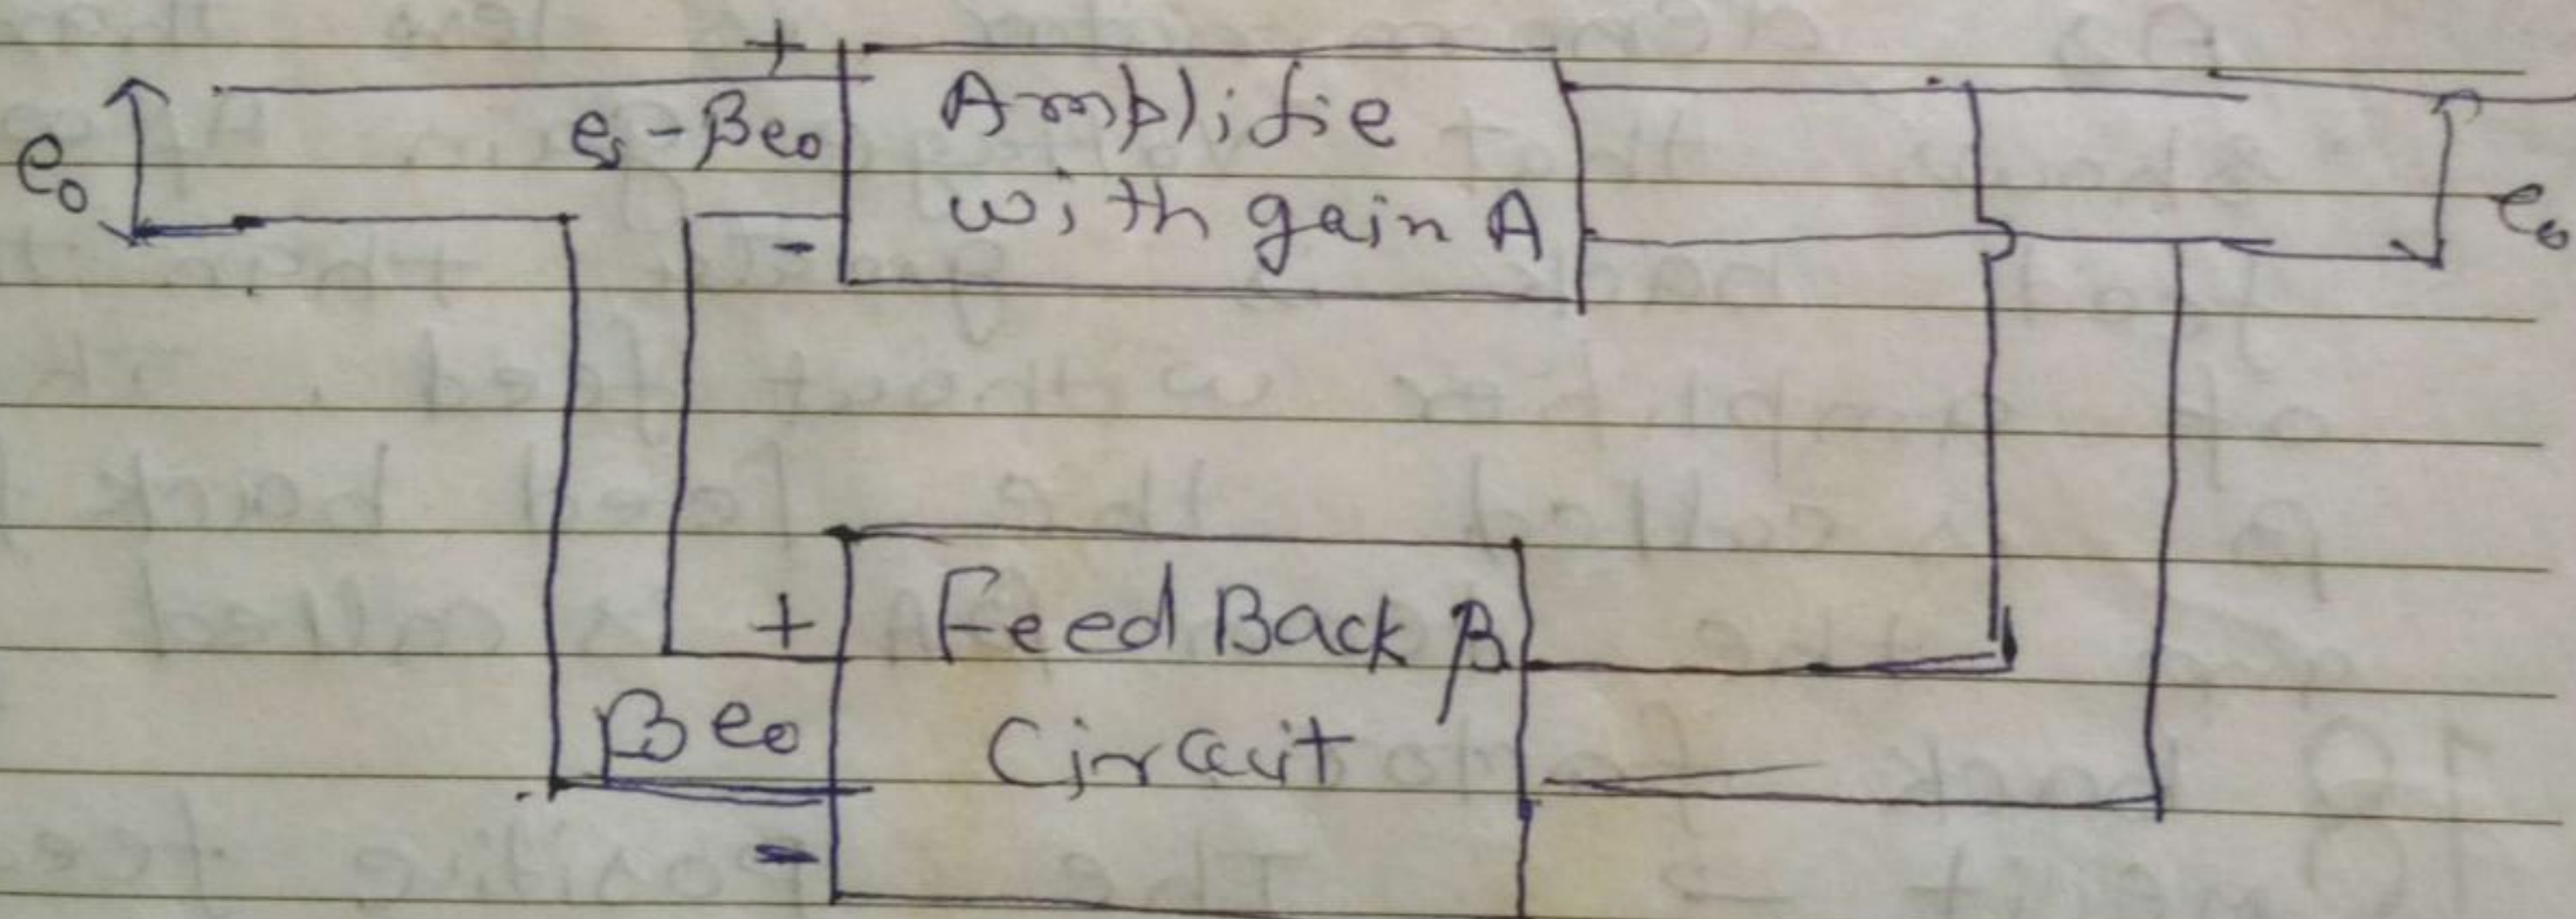 +
e₀
eₛ - βe₀
Amplifie
with gain A
-
e₀
+
Feed Back β
Circuit
βe₀
-